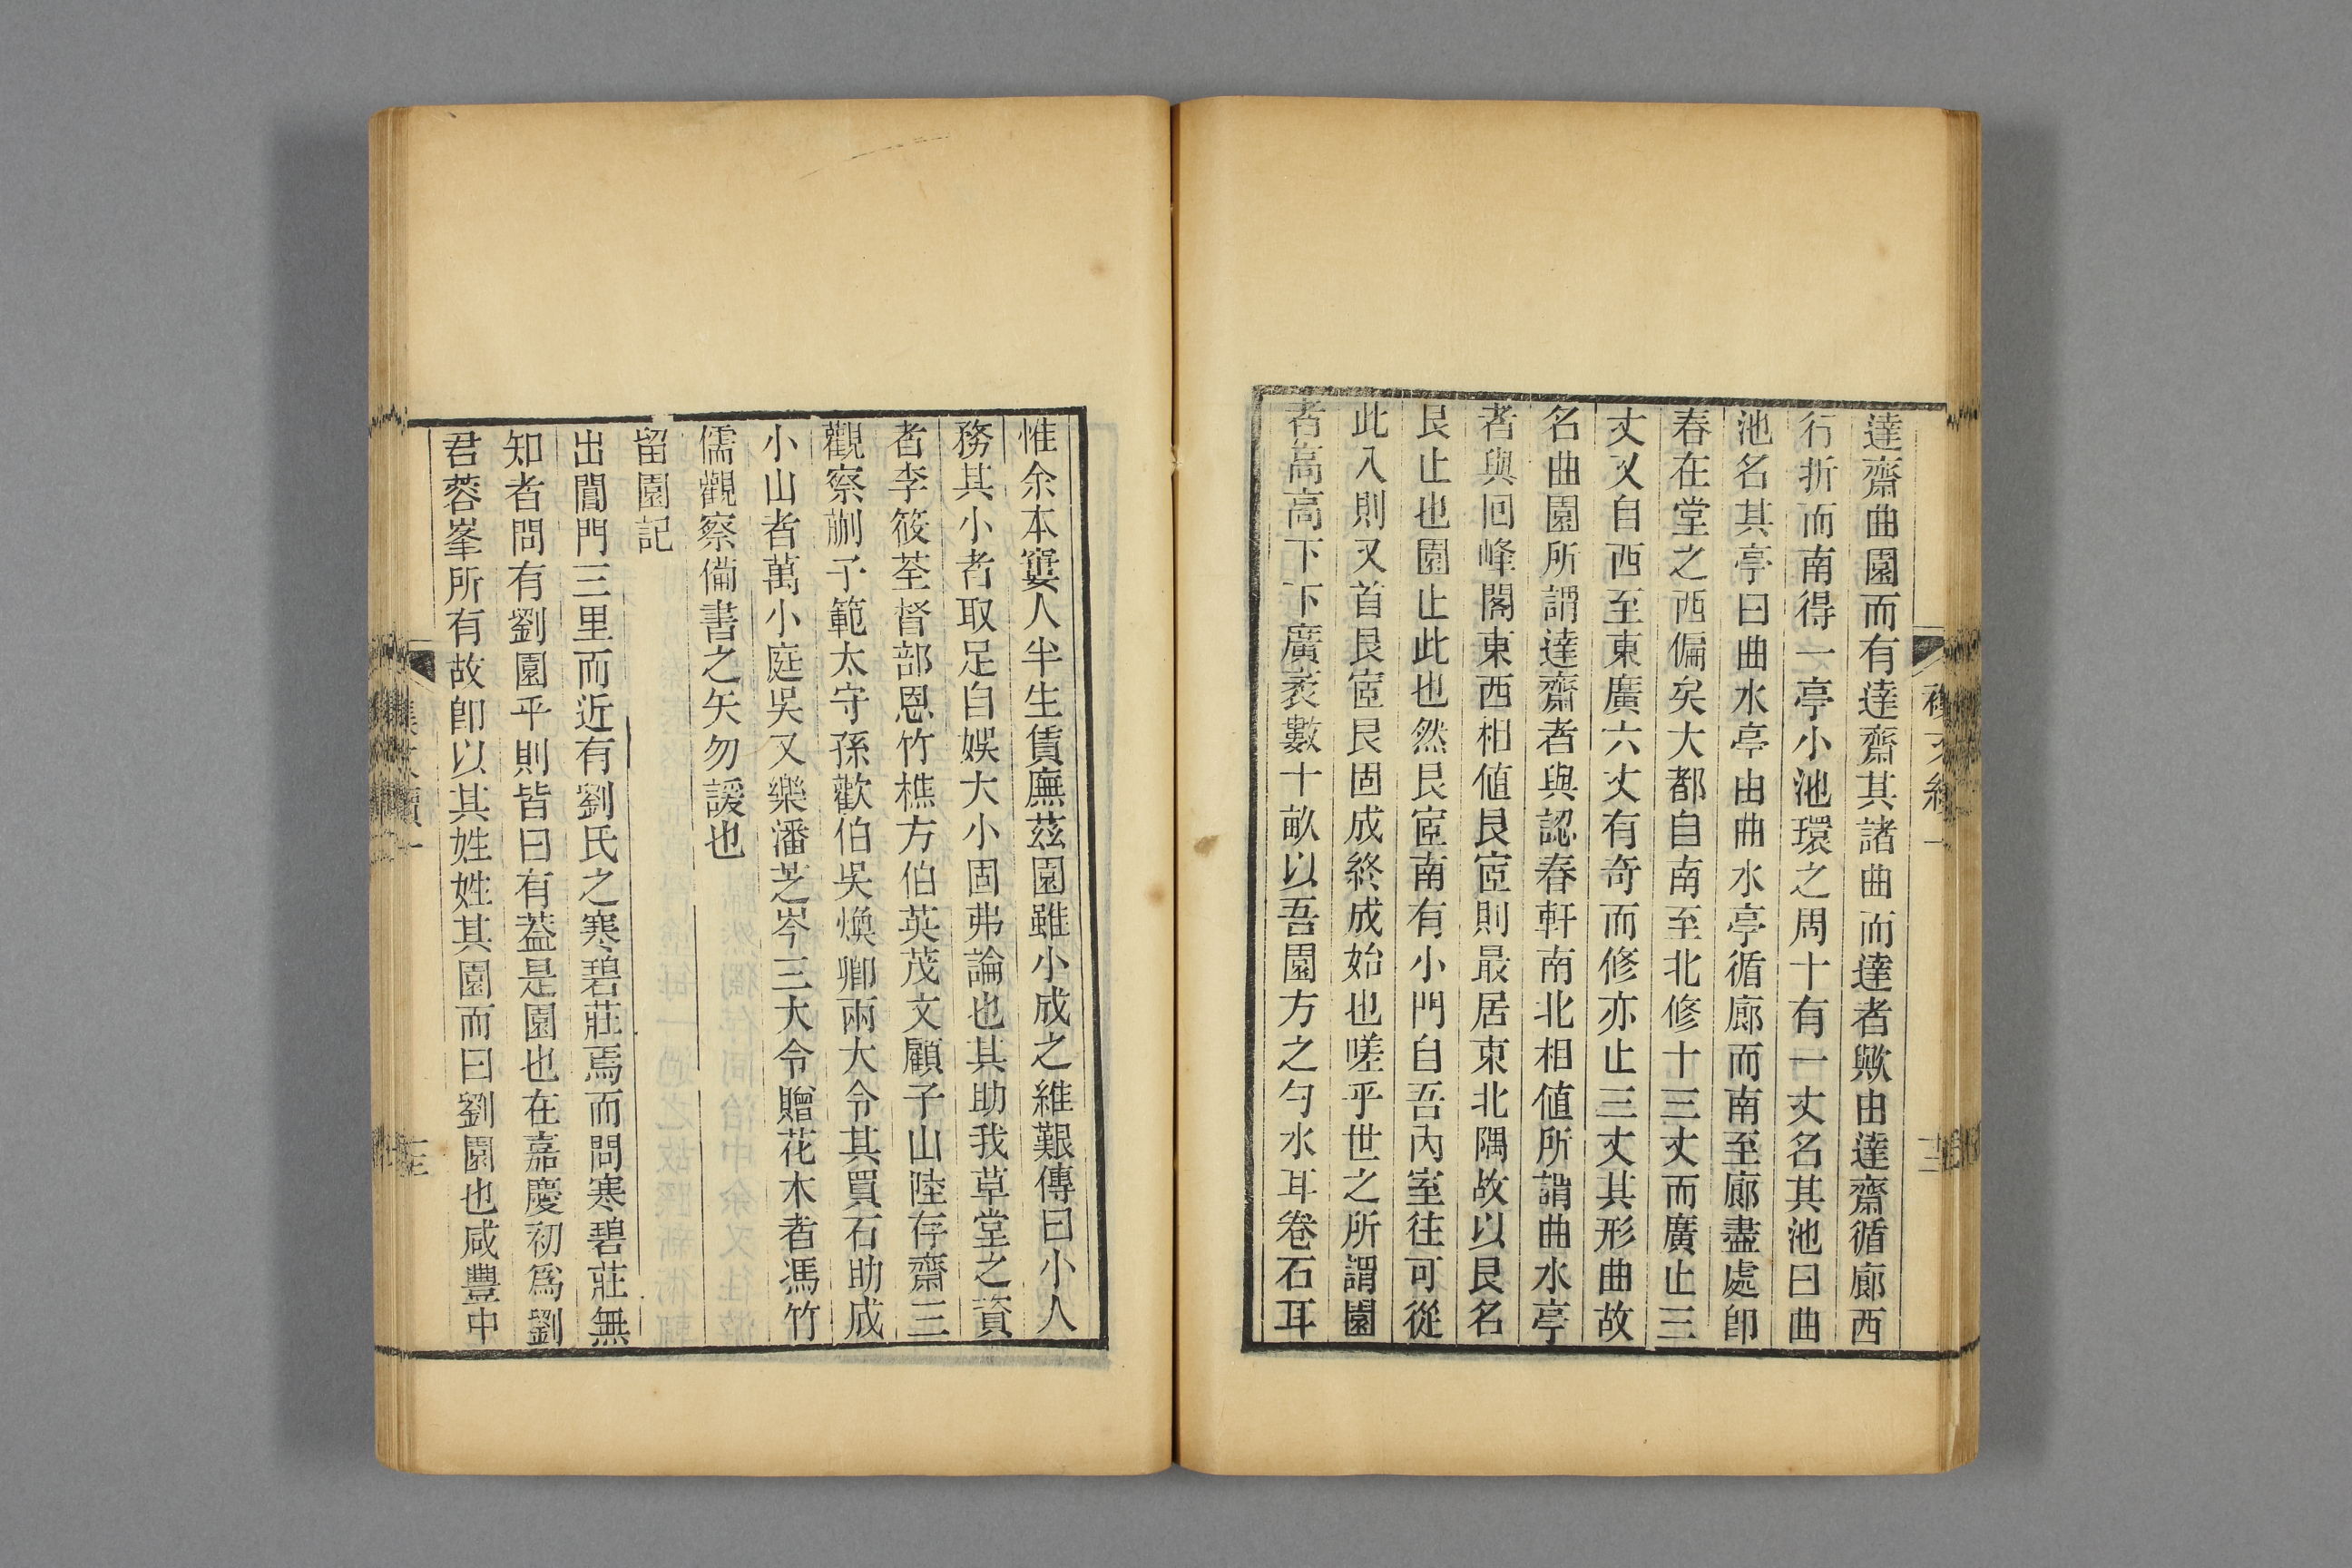 達齋曲園而有達齋其諸曲而達者歟由達齋循廊西
行折而南得一亭小池環之周十有一丈名其池曰曲
池名其亭曰曲水亭由曲水亭循廊而南至廊盡處卽
春在堂之西偏矣大都自南至北修十三丈而廣止三
丈又自西至東廣六丈有奇而修亦止三丈其形曲故
名曲園所謂達齋者與認春軒南北相値所謂曲水亭
者與回峰閣東西相値艮宧則最居東北隅故以艮名
艮止也園止此也然艮宧南有小門自吾內室往可從
此入則又首艮宧艮固成終成始也嗟乎世之所謂園
者高高下下廣袤數十畝以吾園方之勺水耳卷石耳
惟余本窶人半生賃廡茲園雖小成之維艱傳曰小人
務其小者取足自娛大小固弗論也其助我草堂之資
者李筱荃督部恩竹樵方伯英茂文顧子山陸存齋三
觀察蒯子範太守孫歡伯吳煥卿兩大令其買石助成
小山者萬小庭吳又樂潘芝岑三大令贈花木者馮竹
儒觀察備書之矢勿諼也
留園記
出閶門三里而近有劉氏之寒碧莊焉而問寒碧莊無
知者問有劉園乎則皆曰有葢是園也在嘉慶初爲劉
君蓉峯所有故卽以其姓姓其園而曰劉園也咸豐中